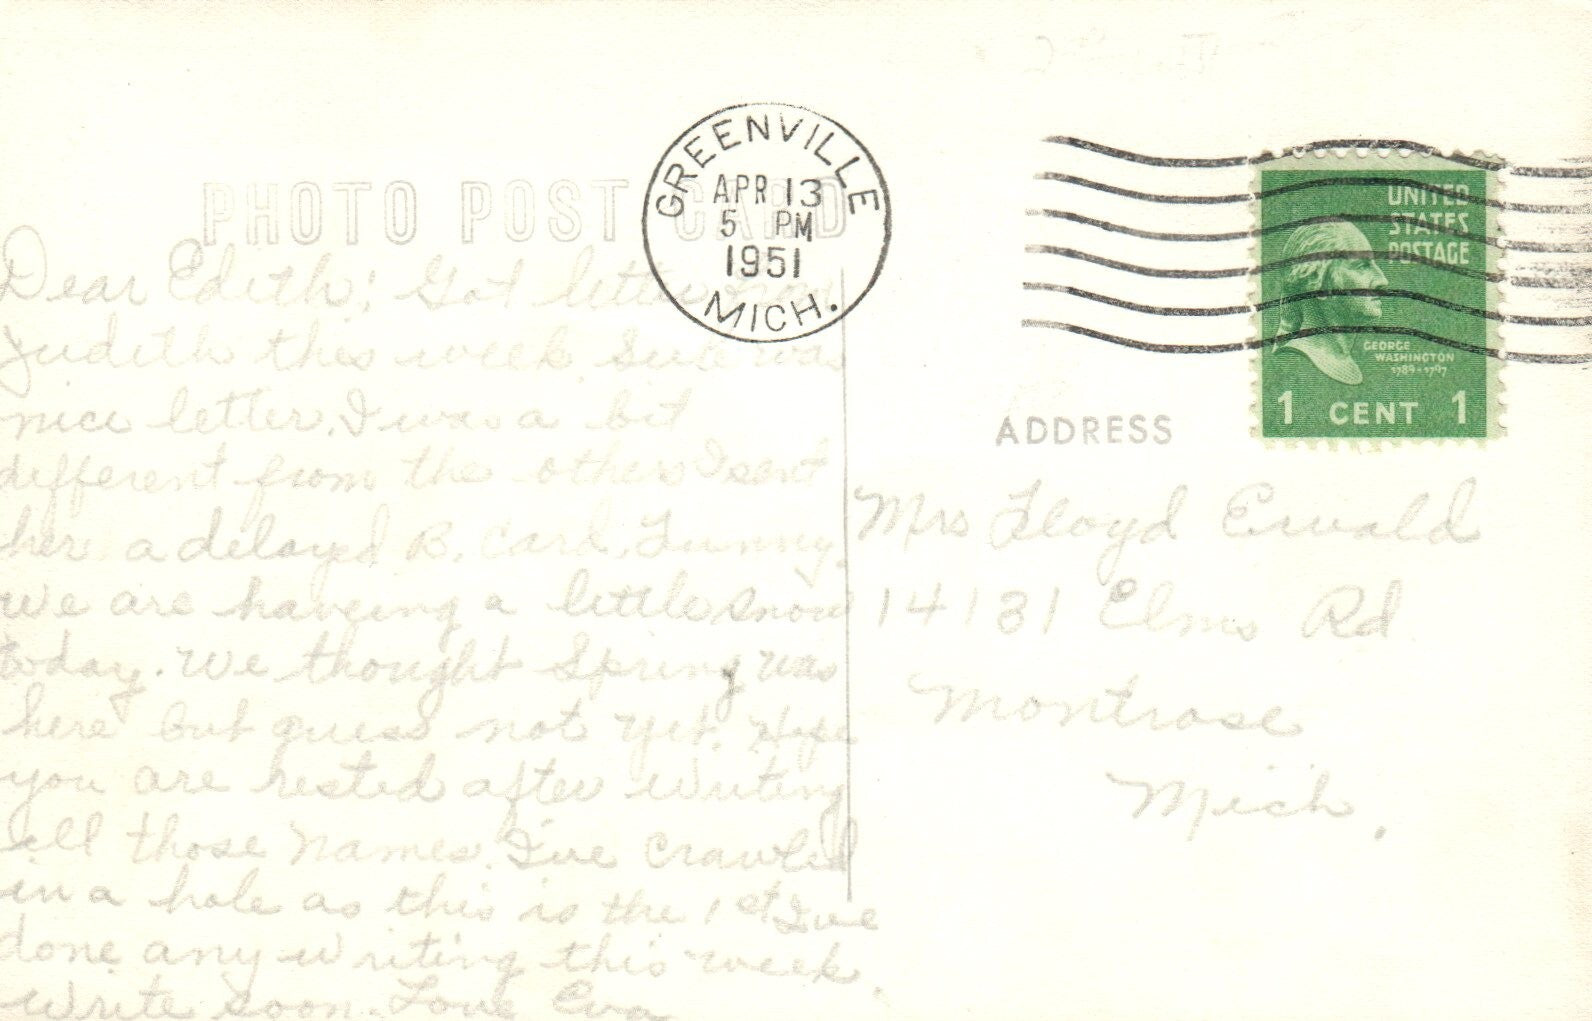 PHOTO POST CARD
GREENVILLE
APR 13
5 PM
1951
MICH.
UNITED
STATES
POSTAGE
GEORGE
WASHINGTON
1789-1797
1 CENT 1
ADDRESS
Dear Edith; Got letter from
Judith this week. Sure was
nice letter. I was a bit
different from the others I sent
her a delayed B. Card. Funny.
We are having a little snow
today. We thought Spring was
here but guess not yet. Hope
you are rested after writing
all those names. I've crawled
in a hole as this is the 1st I've
done any writing this week.
Write soon. Love Eva
Mrs Floyd Ewald
14181 Elms Rd
Montrose
Mich.